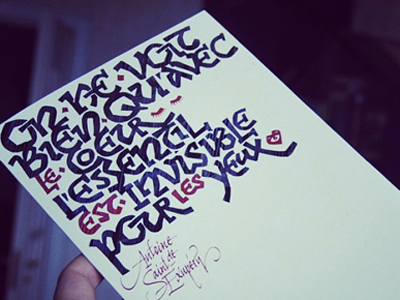 ON·NE·VOIT
BIEN·QU'AVEC
LE·COEUR
L'ESSENTIEL
EST·INVISIBLE
POUR LES YEUX
Antoine
Saint de
Exupéry